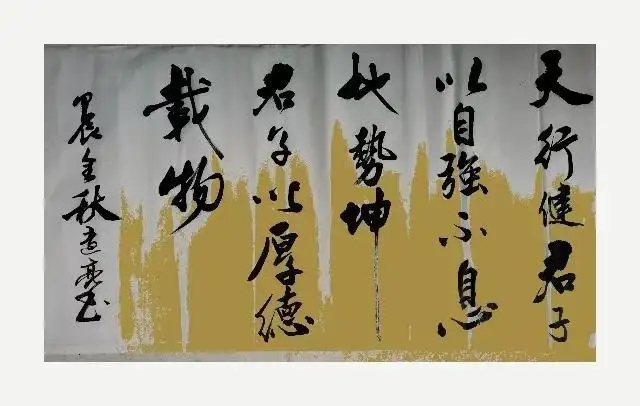 天行健君子
以自強不息
地勢坤
君子以厚德
載物
甲辰金秋建亮书